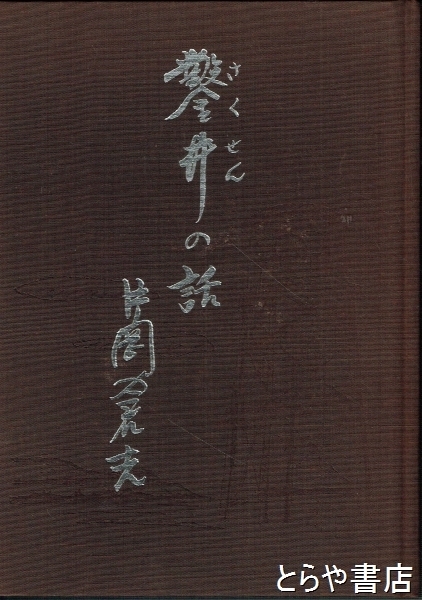 鑿井の話
さくせん
片岡
とらや書店